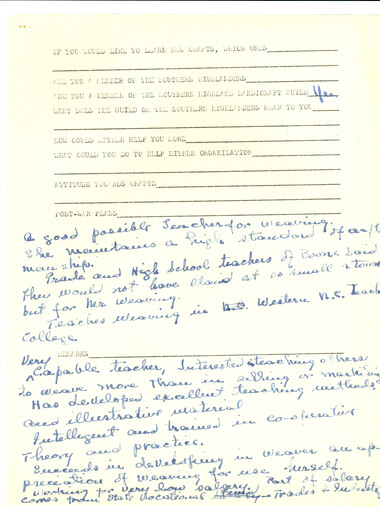 IF YOU WOULD LIKE TO LEARN NEW CRAFTS, WHICH ONES
ARE YOU A MEMBER OF THE SOUTHERN HIGHLANDERS
ARE YOU A MEMBER OF THE SOUTHERN HIGHLAND HANDICRAFT GUILD Yes
WHAT DOES THE GUILD OR THE SOUTHERN HIGHLANDERS MEAN TO YOU
HOW COULD EITHER HELP YOU MORE
WHAT COULD YOU DO TO HELP EITHER ORGANIZATION
ATTITUDE TOWARDS CRAFTS
POST-WAR PLANS
A good possible Teacher for weaving.
She maintains a high standard of
man=ship.
Trade and High School teachers of Boone said
They would not have at so small a
but for her weaving.
Teaches weaving in Western N.C. Teach
College.
REMARKS
Very Capable teacher, Interested teaching others
to weave more Than in selling or
Has developed excellent teaching methods
and illustrative material.
Intelligent and trained in co-operative
Theory and practice.
Succeeds in developing in weaver an ap-
preciation of weaving for use himself.
Working for Very low salary. Part of salary
comes from State Vocational Trades & Industr